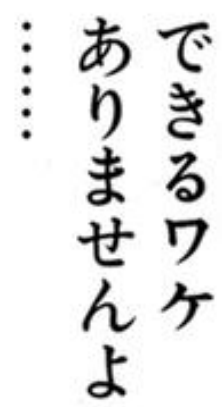 できるワケ
ありませんよ
……